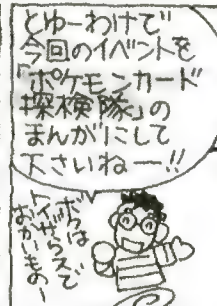 とゆーわけで
今回のイベントを
「ポケモンカード
探検隊」の
まんがにして
下さいねー!!
ボクは
トイザらスで
おかいもの〜